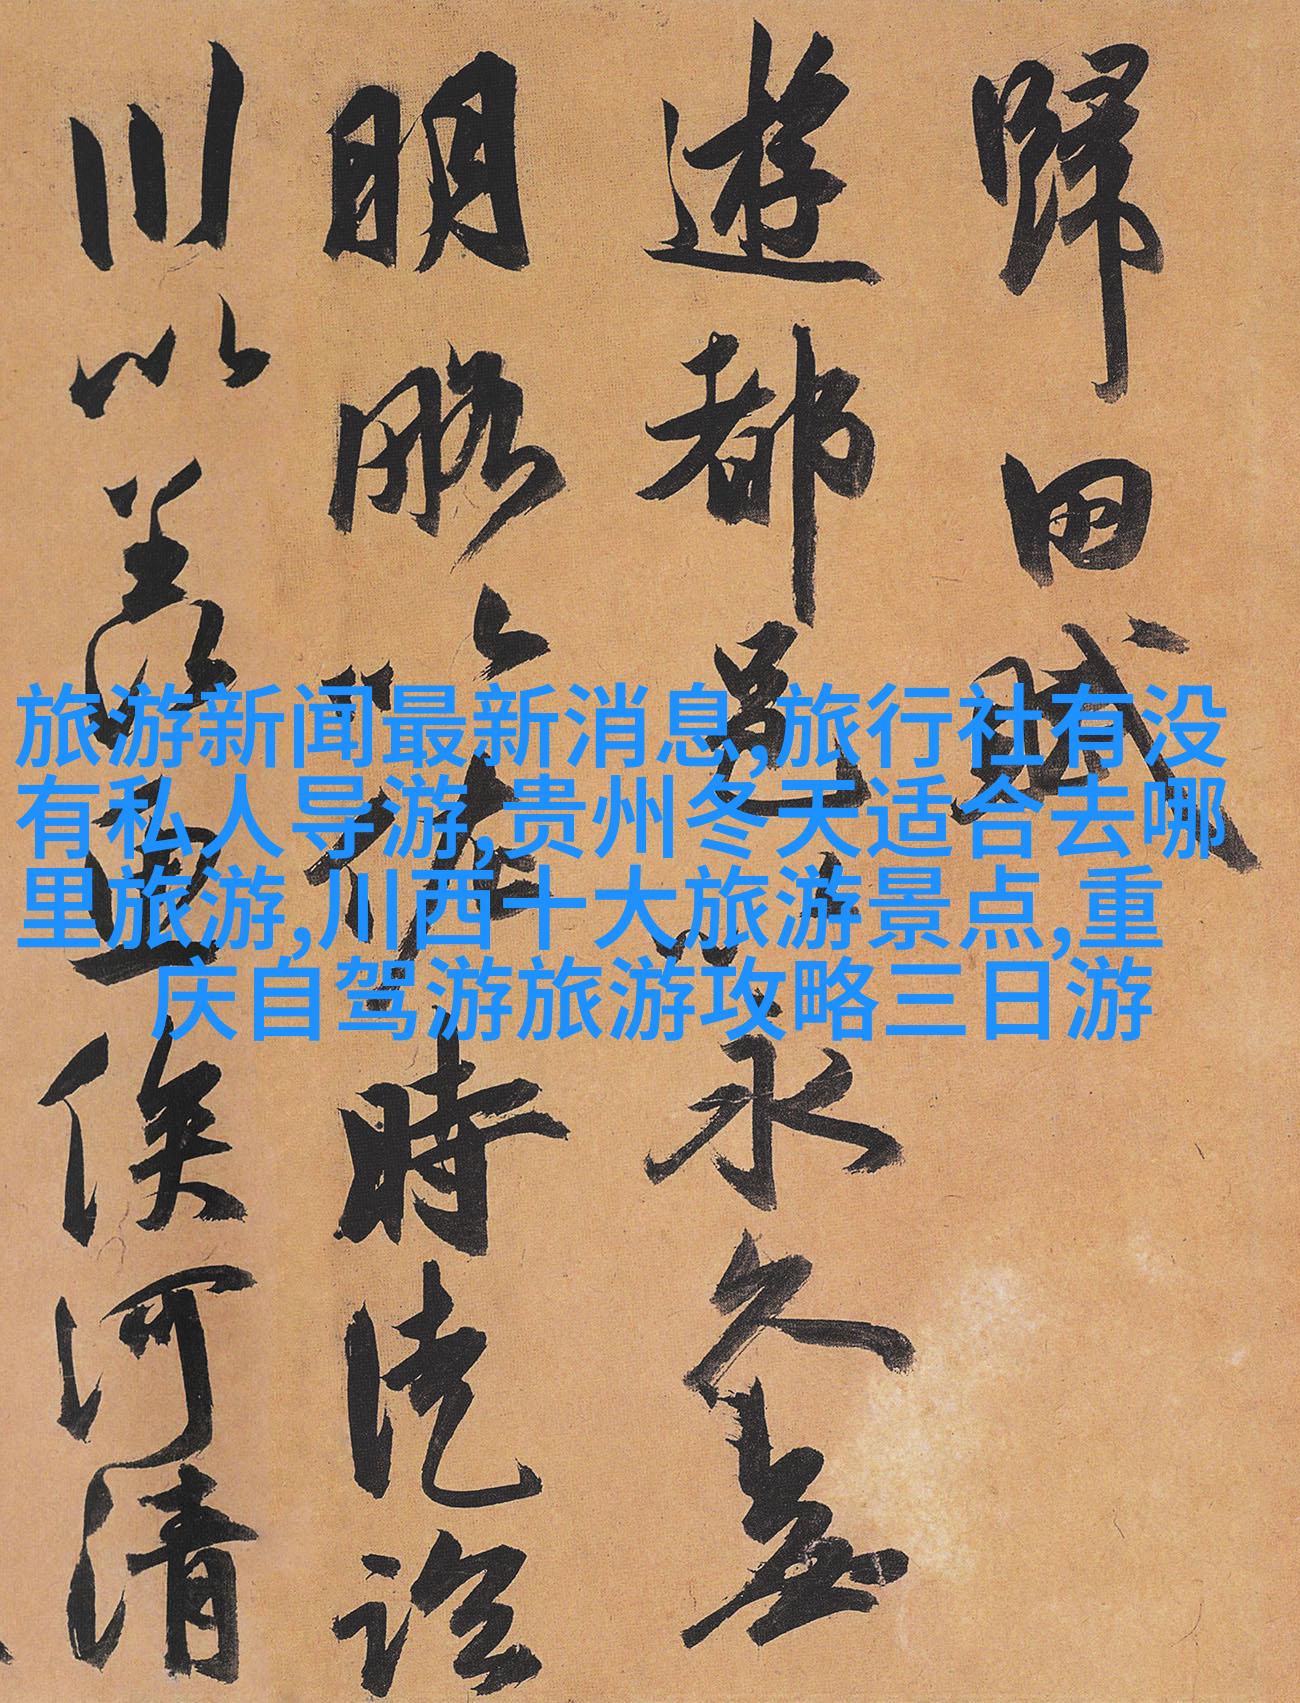 歸田賦
遊都邑以永久無
明略以佐時徒臨
川以羨魚俟河清
旅游新闻最新消息,旅行社有没
有私人导游,贵州冬天适合去哪
里旅游,川西十大旅游景点,重
庆自驾游旅游攻略三日游